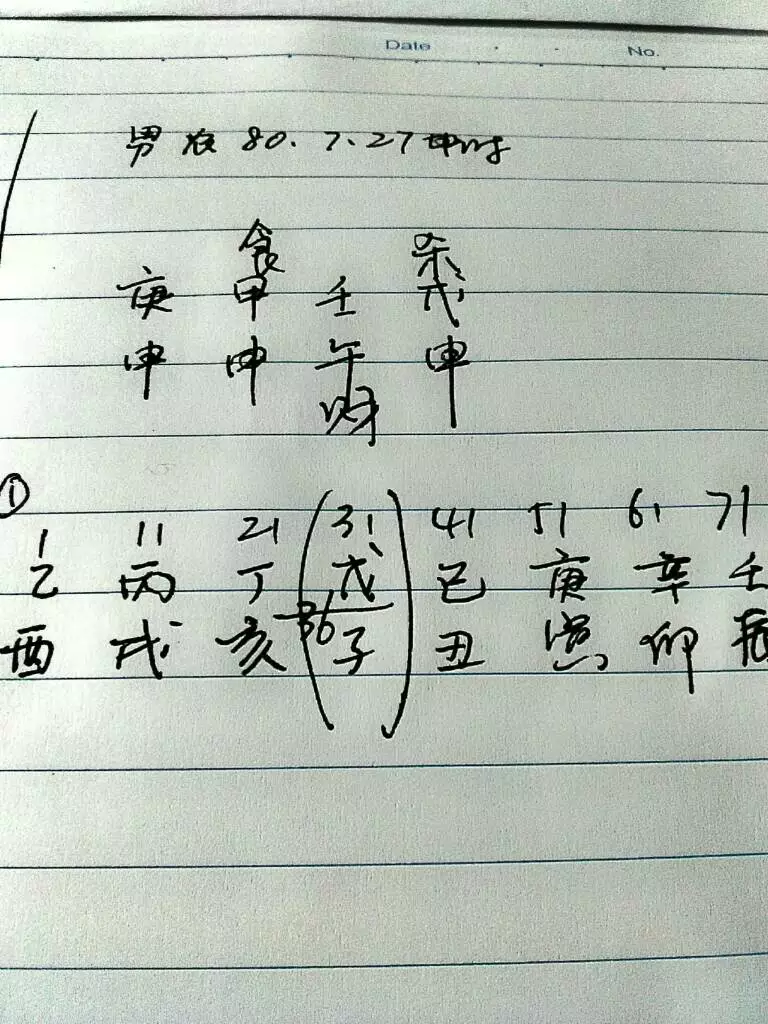 Date No.
男 农 80.7.27 申时
食 杀
庚 甲 壬 戊
申 申 午 申
财
①
1 11 21 31 41 51 61 71
乙 丙 丁 戊 己 庚 辛 壬
36
酉 戌 亥 子 丑 寅 卯 辰